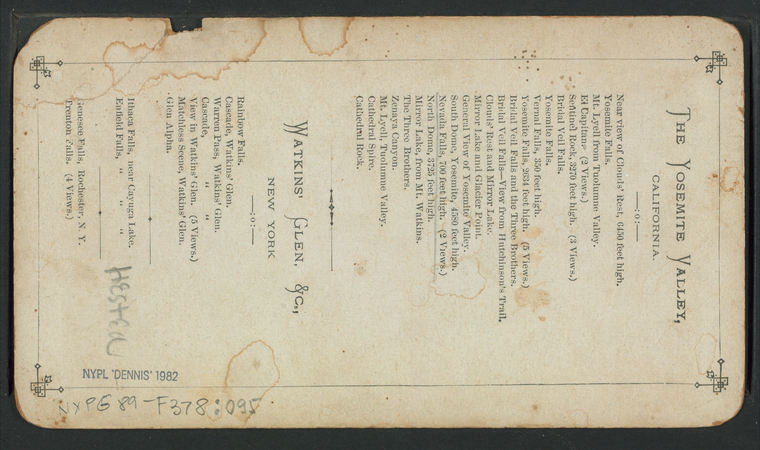 THE YOSEMITE VALLEY,
CALIFORNIA.
—:o:—
Near view of Clouds' Rest, 6450 feet high.
Yosemite Falls.
Mt. Lyell from Tuolumne Valley.
El Capitane (2 Views.)
Sentinel Rock, 3270 feet high. (3 Views.)
Bridal Veil Falls.
Yosemite Falls.
Vernal Falls, 350 feet high.
Yosemite Falls, 2634 feet high. (5 Views.)
Bridal Veil Falls and the Three Brothers.
Bridal Veil Falls—View from Hutchinson's Trail.
Clouds' Rest and Mirror Lake.
Mirror Lake and Glacier Point.
General View of Yosemite Valley.
South Dome, Yosemite, 4580 feet high.
Nevada Falls, 700 feet high. (2 Views.)
North Dome, 3725 feet high.
Mirror Lake, from Mt. Watkins.
The Three Brothers.
Zenaya Canyon.
Mt. Lyell, Tuolumne Valley.
Cathedral Spire.
Cathedral Rock.
WATKINS' GLEN, &C.,
NEW YORK
—:o:—
Rainbow Falls.
Cascade, Watkins' Glen.
Warren Pass, Watkins' Glen.
Cascade, " "
View in Watkins' Glen. (5 Views.)
Matchless Scene, Watkins' Glen.
Glen Alpha.
Ithaca Falls, near Cayuga Lake.
Enfield Falls, " "
Genesee Falls, Rochester, N. Y.
Trenton Falls. (4 Views.)
NYPL 'DENNIS' 1982
NYPG 89-F378:095